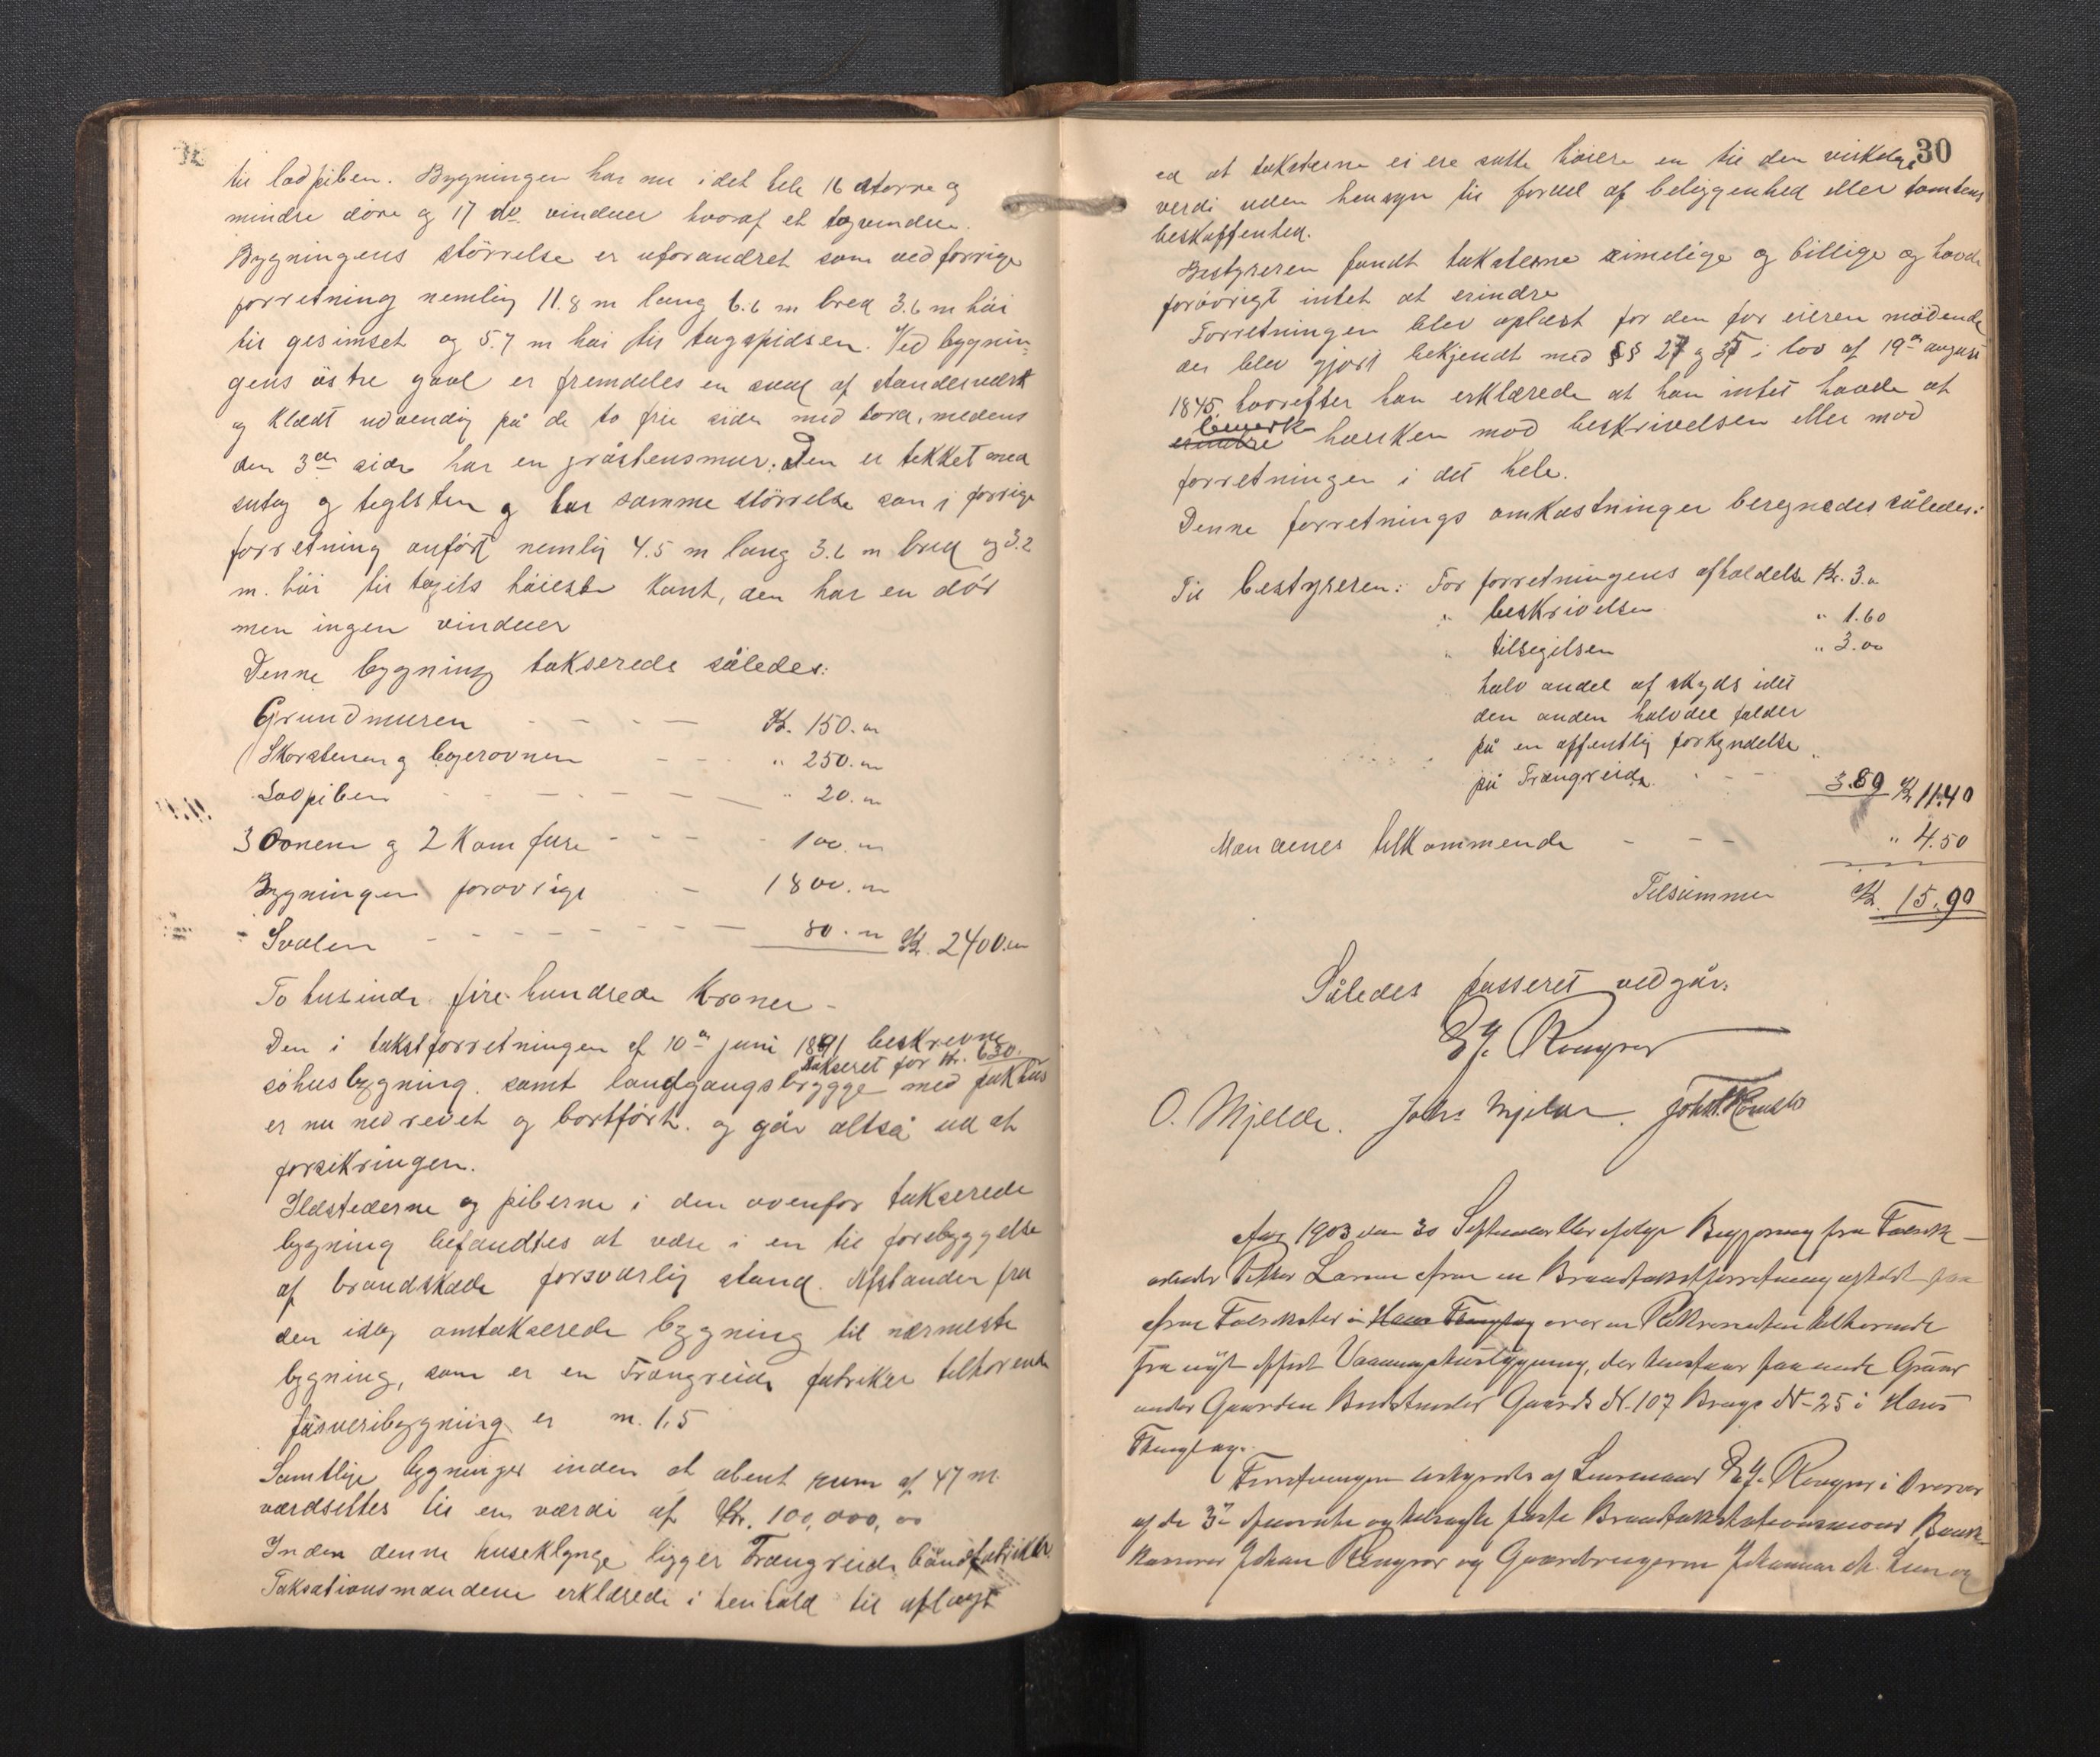 til ladpiben. Bygningen har nu i det hele 16 större og
mindre döre og 17 do vinduer hvoraf et tagvindu.
Bygningens störrelse er uforandret som ved forrige
forretning nemlig 11.8 m lang 6.6 m bred 3.6 m höi
til gesimset og 5.7 m höi til tagspidsen. Ved bygnin-
gens östre gavl er fremdeles en sval af standerværk
og klædt udvendig på de to frie sider med bord, medens
den 3die side har en gråstensmur. Den er tekket med
sutag og teglsten og har samme störrelse som i forrige
forretning anfört nemlig 4.5 m lang 3.6 m bred og 3.2
m. höi til tagets höieste kant, den har en dör
men ingen vinduer
Denne bygning takserede således:
Grundmuren - - - - Kr. 150.00
Skorstenen og bagerovnen - - - " 250.00
Ladpiben - - - - - " 20.00
3 Ovnene og 2 Komfure - - - - 100.00
Bygningen forøvrigt - 1800.00
Svalen - - - - - - 80.00 Kr. 2400.00
To tusinde fire hundrede Kroner -
Den i takstforretningen af 10de juni 1891 beskrevne
takseret for Kr. 630.
söhusbygning samt landgangsbrygge med pakhus
er nu nedrevet og bortfört. og går altså ud af
forsikringen.
Ildstederne og piberne i den ovenfor takserede
bygning befandtes at være i en til forebyggelse
af brandskade forsvarlig stand. Afstanden fra
den idag omtakserede bygning til nærmeste
bygning, som er en Trængreids fabriker tilhörende
farveribygning er m. 1,5
Samtlige bygninger inden et åbent rum af 47 m.
værdsettes til en værdi af Kr. 100,000,00
Inden denne huseklynge ligger Trængreids båndfabrikker.
Taksationsmændene erklærede i henhold til aflagt
30
ed at taksterne ei ere satte höiere en til den virkelige
verdi uden hensyn til fordel af beliggenhed eller tomtens
beskaffenhed.
Bestyreren fandt taksterne rimelige og billige og havde
forövrigt intet at erindre
Forretningen blev oplæst for den for eieren mödende
der blev gjort bekjendt med §§ 27 og 35 i lov af 19de august
1845, hvorefter han erklærede at han intet havde at
bemerke
erindre hverken mod beskrivelsen eller mod
forretningen i det hele.
Denne forretnings omkostninger beregnedes således:
Til bestyreren: For forretningens afholdelse Kr. 3.00
" beskrivelsen " 1.60
" tilsigelsen " 3.00
halv andel af skyds idet
den anden halvdel falder
på en offentlig forkyndelse
på Trængreid. - - 3.80 Kr 11.40
Mændenes tilkommende - - " 4.50
Tilsammen Kr. 15.90
Således passeret vedgår.
O. Mjelde. Johs Mjelde.
Aar 1903 den 30 September blev ifølge Begjæring fra Fabrik-
arbeider Petter Larsen en Brandtakstforretning afholdt paa
under Gaarden Gaards N. 107 Brugs N- 25 i Haus
Thinglag.
Forretningen bestyredes af Lensmand
af de 3de opnævnte og tilsagte faste Brandtakstationsmænd Bank-
kasserer Johan og Gaardbrugerne Johannes